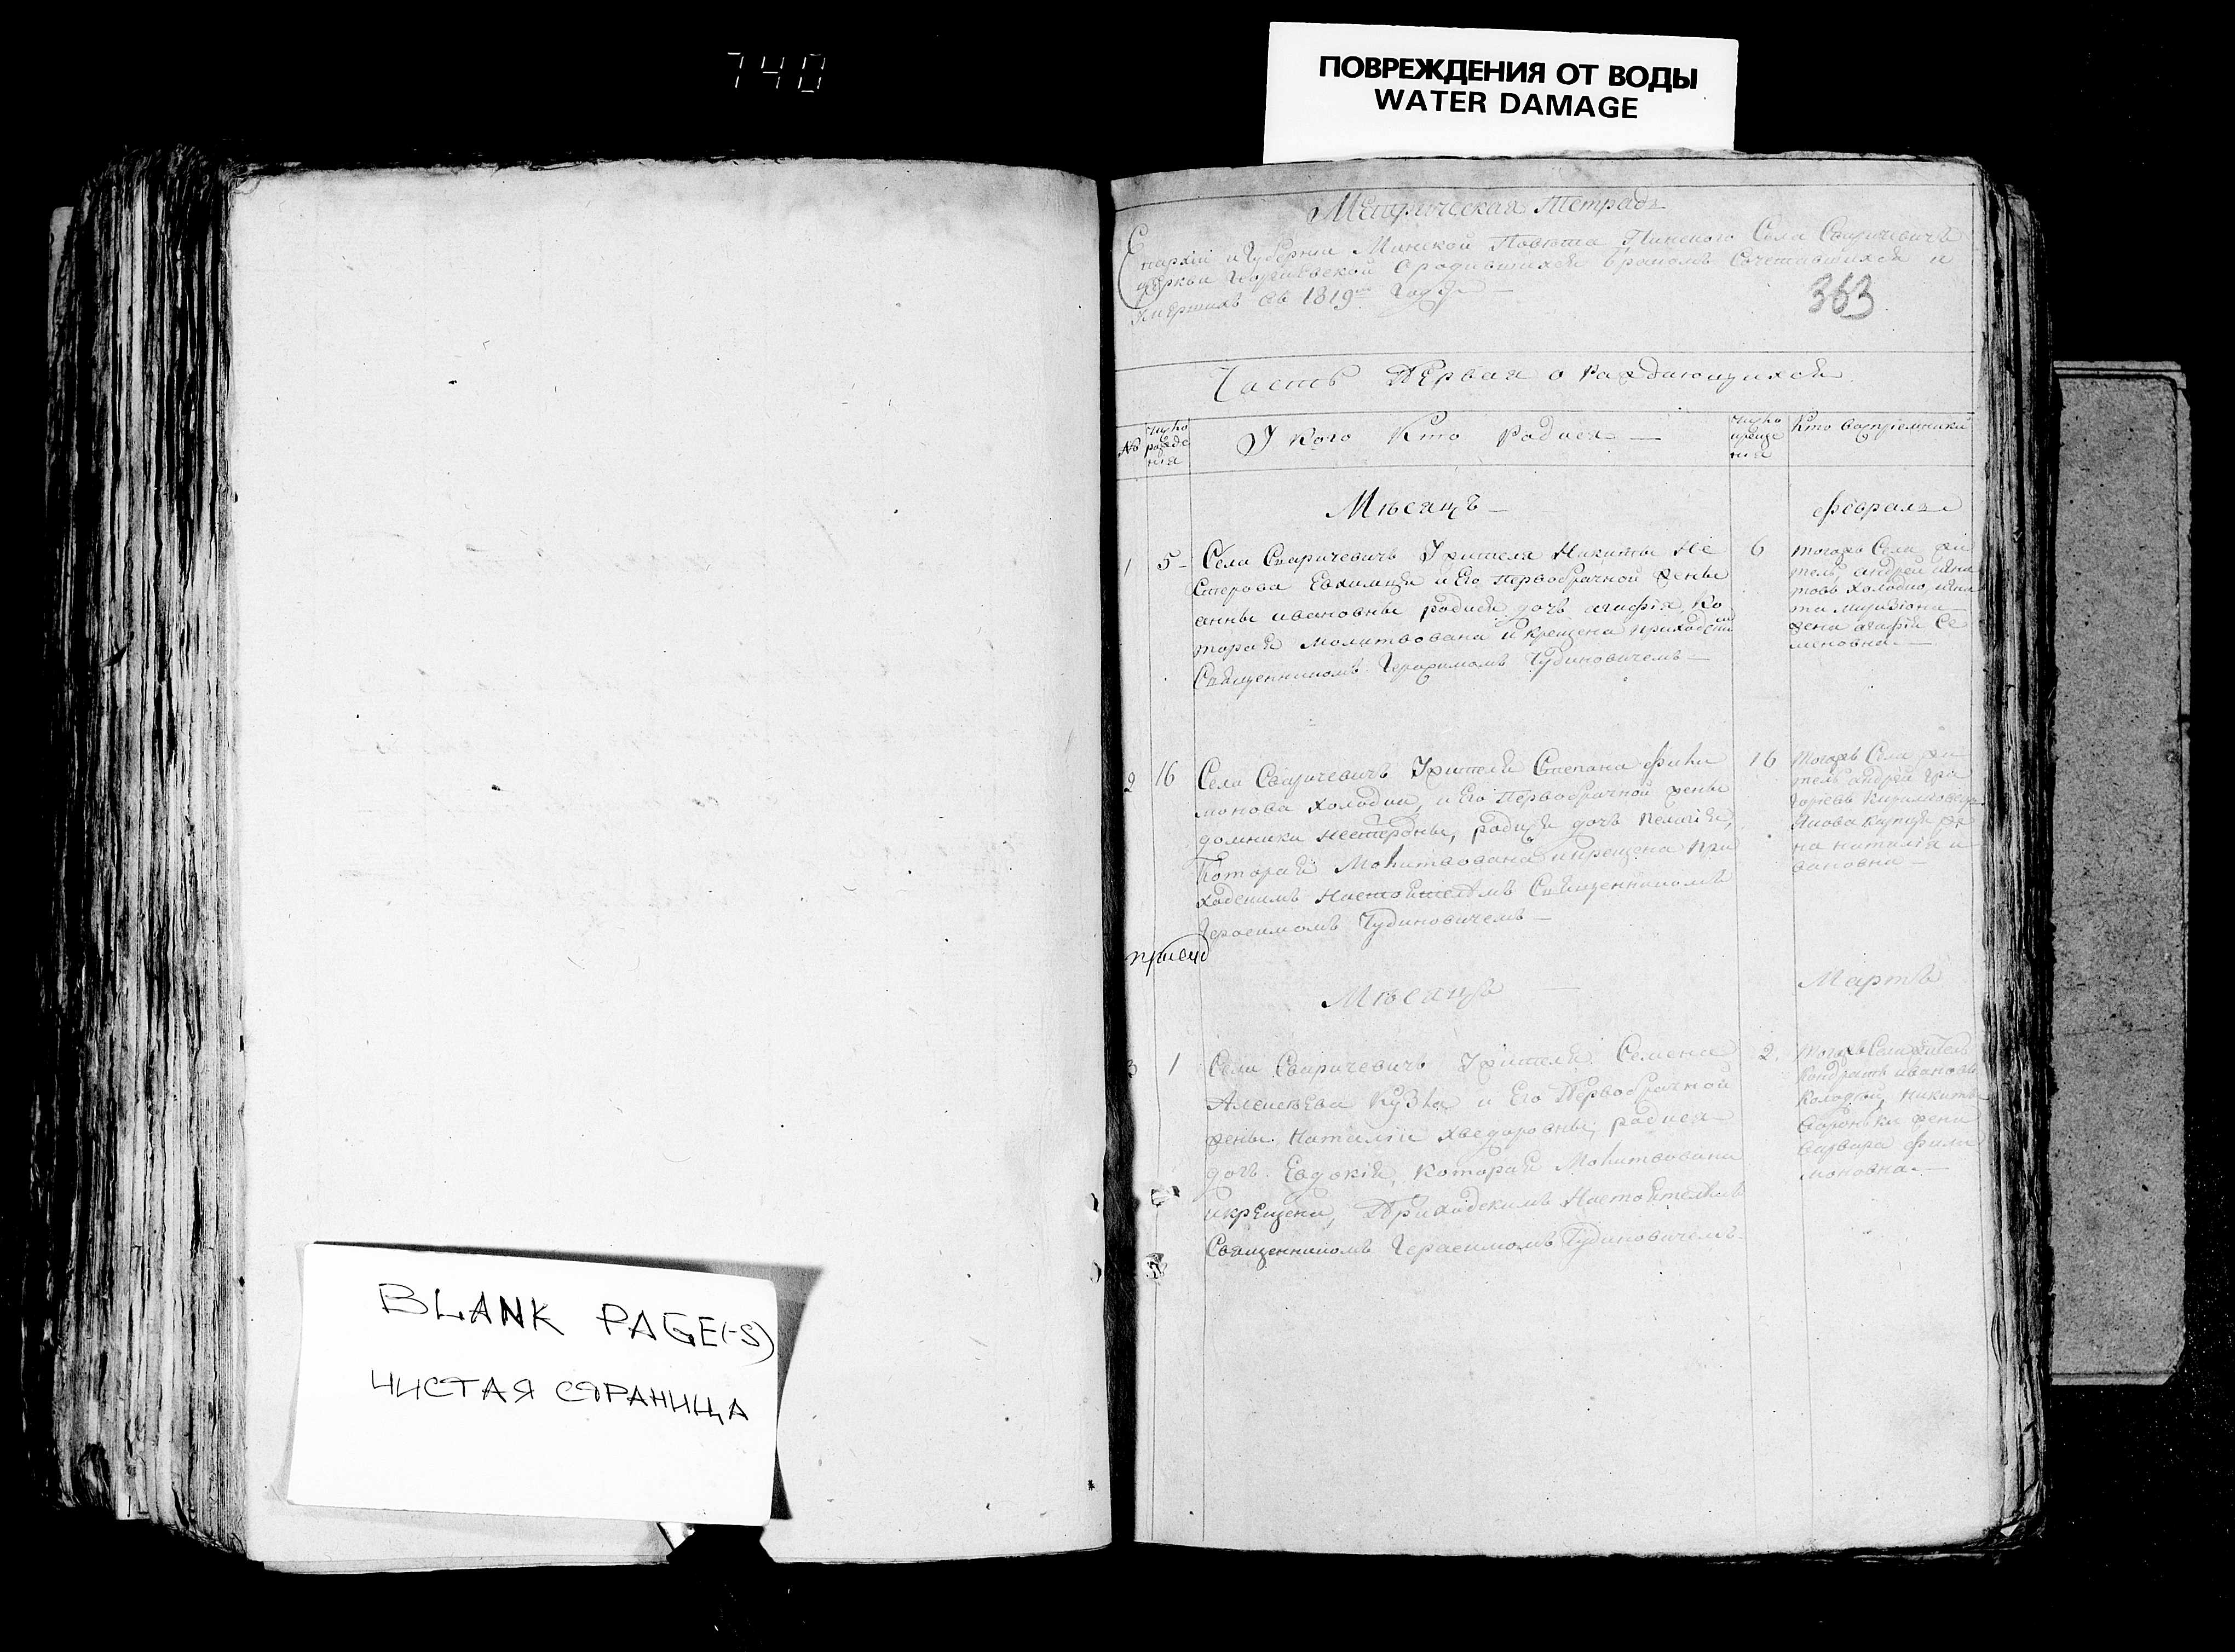 740
ПОВРЕЖДЕНИЯ ОТ ВОДЫ
WATER DAMAGE
Метрическая Тетрадь
Епархіи и Губерніи Минской Повѣта Пинского Села Сваричевичъ
церкви Георгіевской о родившихся бракомъ Сочетавшихся и
Умершихъ въ 1819мъ Годѣ —
363
Часть Первая о Раждающихся
№
число рожде нія
У кого Кто Родися —
число креще нія
Кто воспріемники
Мѣсяцъ —
Февраля
1
5
Села Сваричевичъ Жителя Никиты Не
стерова Евхимца и Его Первобрачной жены
анны ивановны родися дочь агафія, Ко
торая молитвована и крещена приходским
Священникомъ Герасимомъ Чудиновичемъ —
6
тогожъ Села жи
тель андрей
товъ Холодио,
жена агафія Се
меновна —
2
16
Села Сваричевичъ Жителя Степана Фили
монова Холодии, и Его Первобрачной жены
домники нестеровны, родися дочь Пелагія,
Которая Молитвована и крещена При
ходскимъ Настоятелемъ Священникомъ
Герасимомъ Чудиновичемъ —
16
тогожъ Села жи
тель андрей Гри
горьевъ
же
на наталія и
вановна —
Мѣсяцъ —
Марта
3
1
Села Сваричевичъ Жителя Семена
Алексѣева Кузла и Его Первобрачной
жены Наталіи хведоровны, родися
дочь Евдокія, Которая Молитвована
и крещена, Приходскимъ Настоятелемъ
Священникомъ Герасимомъ Чудиновичемъ.
2
тогожъ Села житель
Кондратъ ивановъ
Колодій, никиты
жена
варвара фили
моновна. —
BLANK PAGE(-S)
ЧИСТАЯ СТРАНИЦА